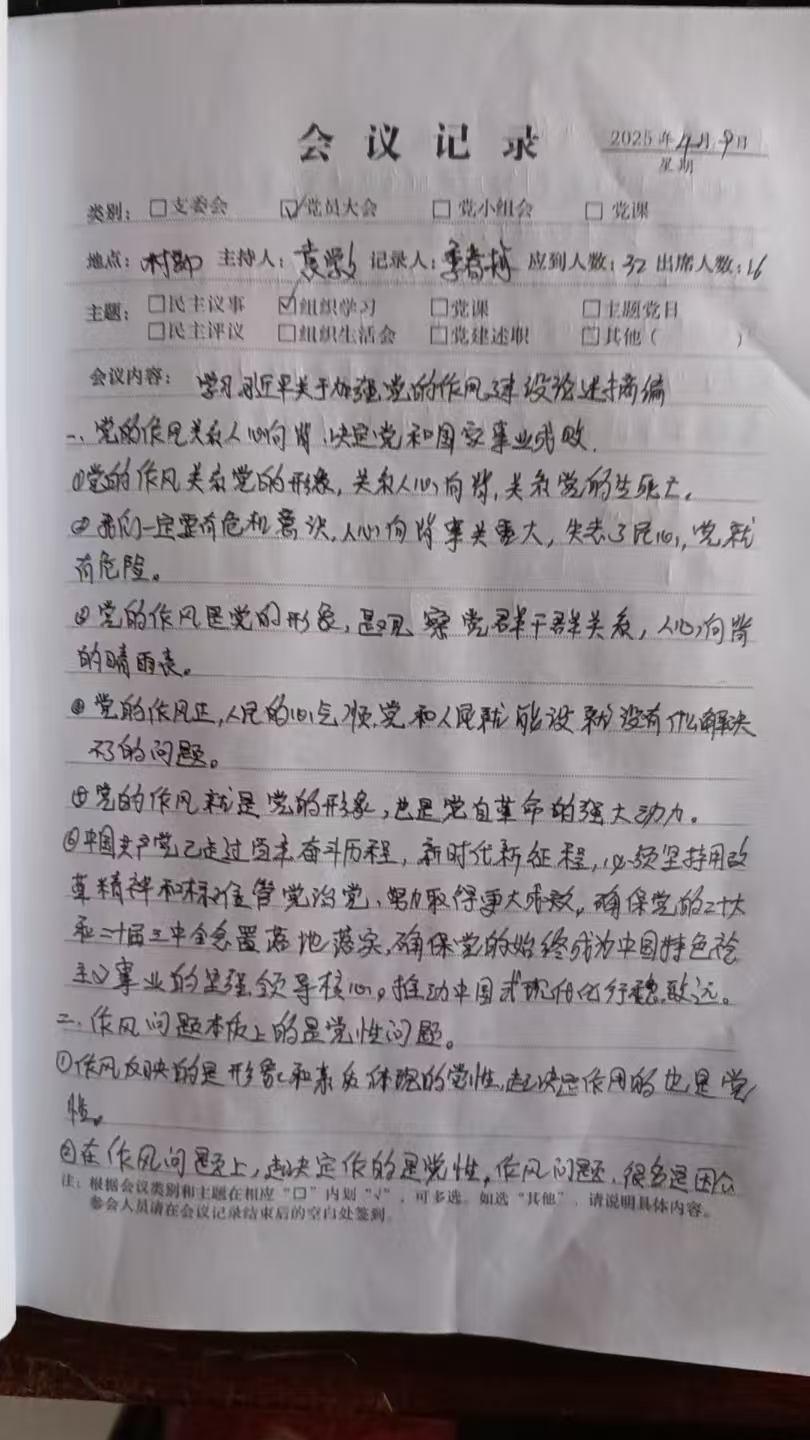 会议记录
2025年4月9日
星期
类别：□支委会 ☑党员大会 □党小组会 □党课
地点：村部 主持人： 记录人：季 应到人数：32 出席人数：16
主题：□民主议事 ☑组织学习 □党课 □主题党日
□民主评议 □组织生活会 □党建述职 □其他（ ）
会议内容：学习习近平关于加强党的作风建设论述摘编
一、党的作风关系人心向背,决定党和国家事业成败.
①党的作风关系党的形象，关系人心向背，关系党的生死亡。
②我们一定要有危机意识，人心向背事关重大，失去了民心，党就
有危险。
③党的作风是党的形象，是观察党群干群关系，人心向背
的晴雨表。
④党的作风正，人民的心气顺，党和人民就能没就没有什么解决
不了的问题。
⑤党的作风就是党的形象，也是党自革命的强大动力。
⑥中国共产党已走过百年奋斗历程，新时代新征程，必须坚持用改
革精神和标准管党治党、努力取得更大成效，确保党的二十大
和二十届三中全会置落地落实，确保党的始终成为中国特色社
主义事业的坚强领导核心，推动中国式现代化行稳致远。
二、作风问题本质上的是党性问题。
①作风反映的是形象和素质体现的党性，起决定作用的也是党
性。
②在作风问题上，起决定作的是党性，作风问题，很多是因公
注：根据会议类别和主题在相应“□”内划“√”，可多选。如选“其他”，请说明具体内容。
参会人员请在会议记录结束后的空白处签到。